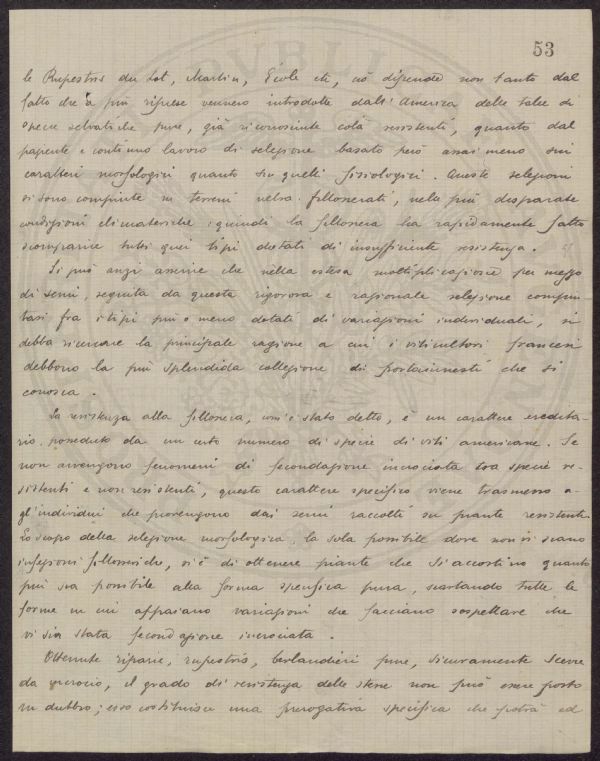 53
le Rupestris du Lot, Martin, École etc, ciò dipende non tanto dal
fatto che a più riprese vennero introdotte dall'America delle talee di
specie selvatiche pure, già riconosciute colà resistenti, quanto dal
paziente e continuo lavoro di selezione basato però assai meno sui
caratteri morfologici quanto su quelli fisiologici. Queste selezioni
si sono compiute in terreni fillosserati, nelle più disparate
condizioni climateriche; quindi la fillossera ha rapidamente fatto
scomparire tutti quei tipi dotati di insufficiente resistenza.
Si può anzi asserire che nella estesa moltiplicazione per mezzo
di semi, seguita da questa rigorosa e razionale selezione compiu-
tasi fra i tipi più o meno dotati di variazioni individuali, si
debba ricercare la principale ragione a cui i viticultori francesi
debbono la più splendida collezione di portainnesti che si
conosca.
La resistenza alla fillossera, com'è stato detto, è un carattere eredita-
rio posseduto da un certo numero di specie di viti americane. Se
non avvengono fenomeni di fecondazione incrociata tra specie re-
sistenti e non resistenti, questo carattere specifico viene trasmesso a-
gl'individui che provengono dai semi raccolti su piante resistenti.
Lo scopo della selezione morfologica, la sola possibile dove non vi siano
infezioni fillosseriche, si è di ottenere piante che si accostino quanto
più sia possibile alla forma specifica pura, scartando tutte le
forme in cui appaiano variazioni che facciano sospettare che
vi sia stata fecondazione incrociata.
Ottenute riparie, rupestris, berlandieri pure, sicuramente scevre
da incrocio, il grado di resistenza delle stesse non può essere posto
in dubbio; esso costituisce una prerogativa specifica che potrà ed